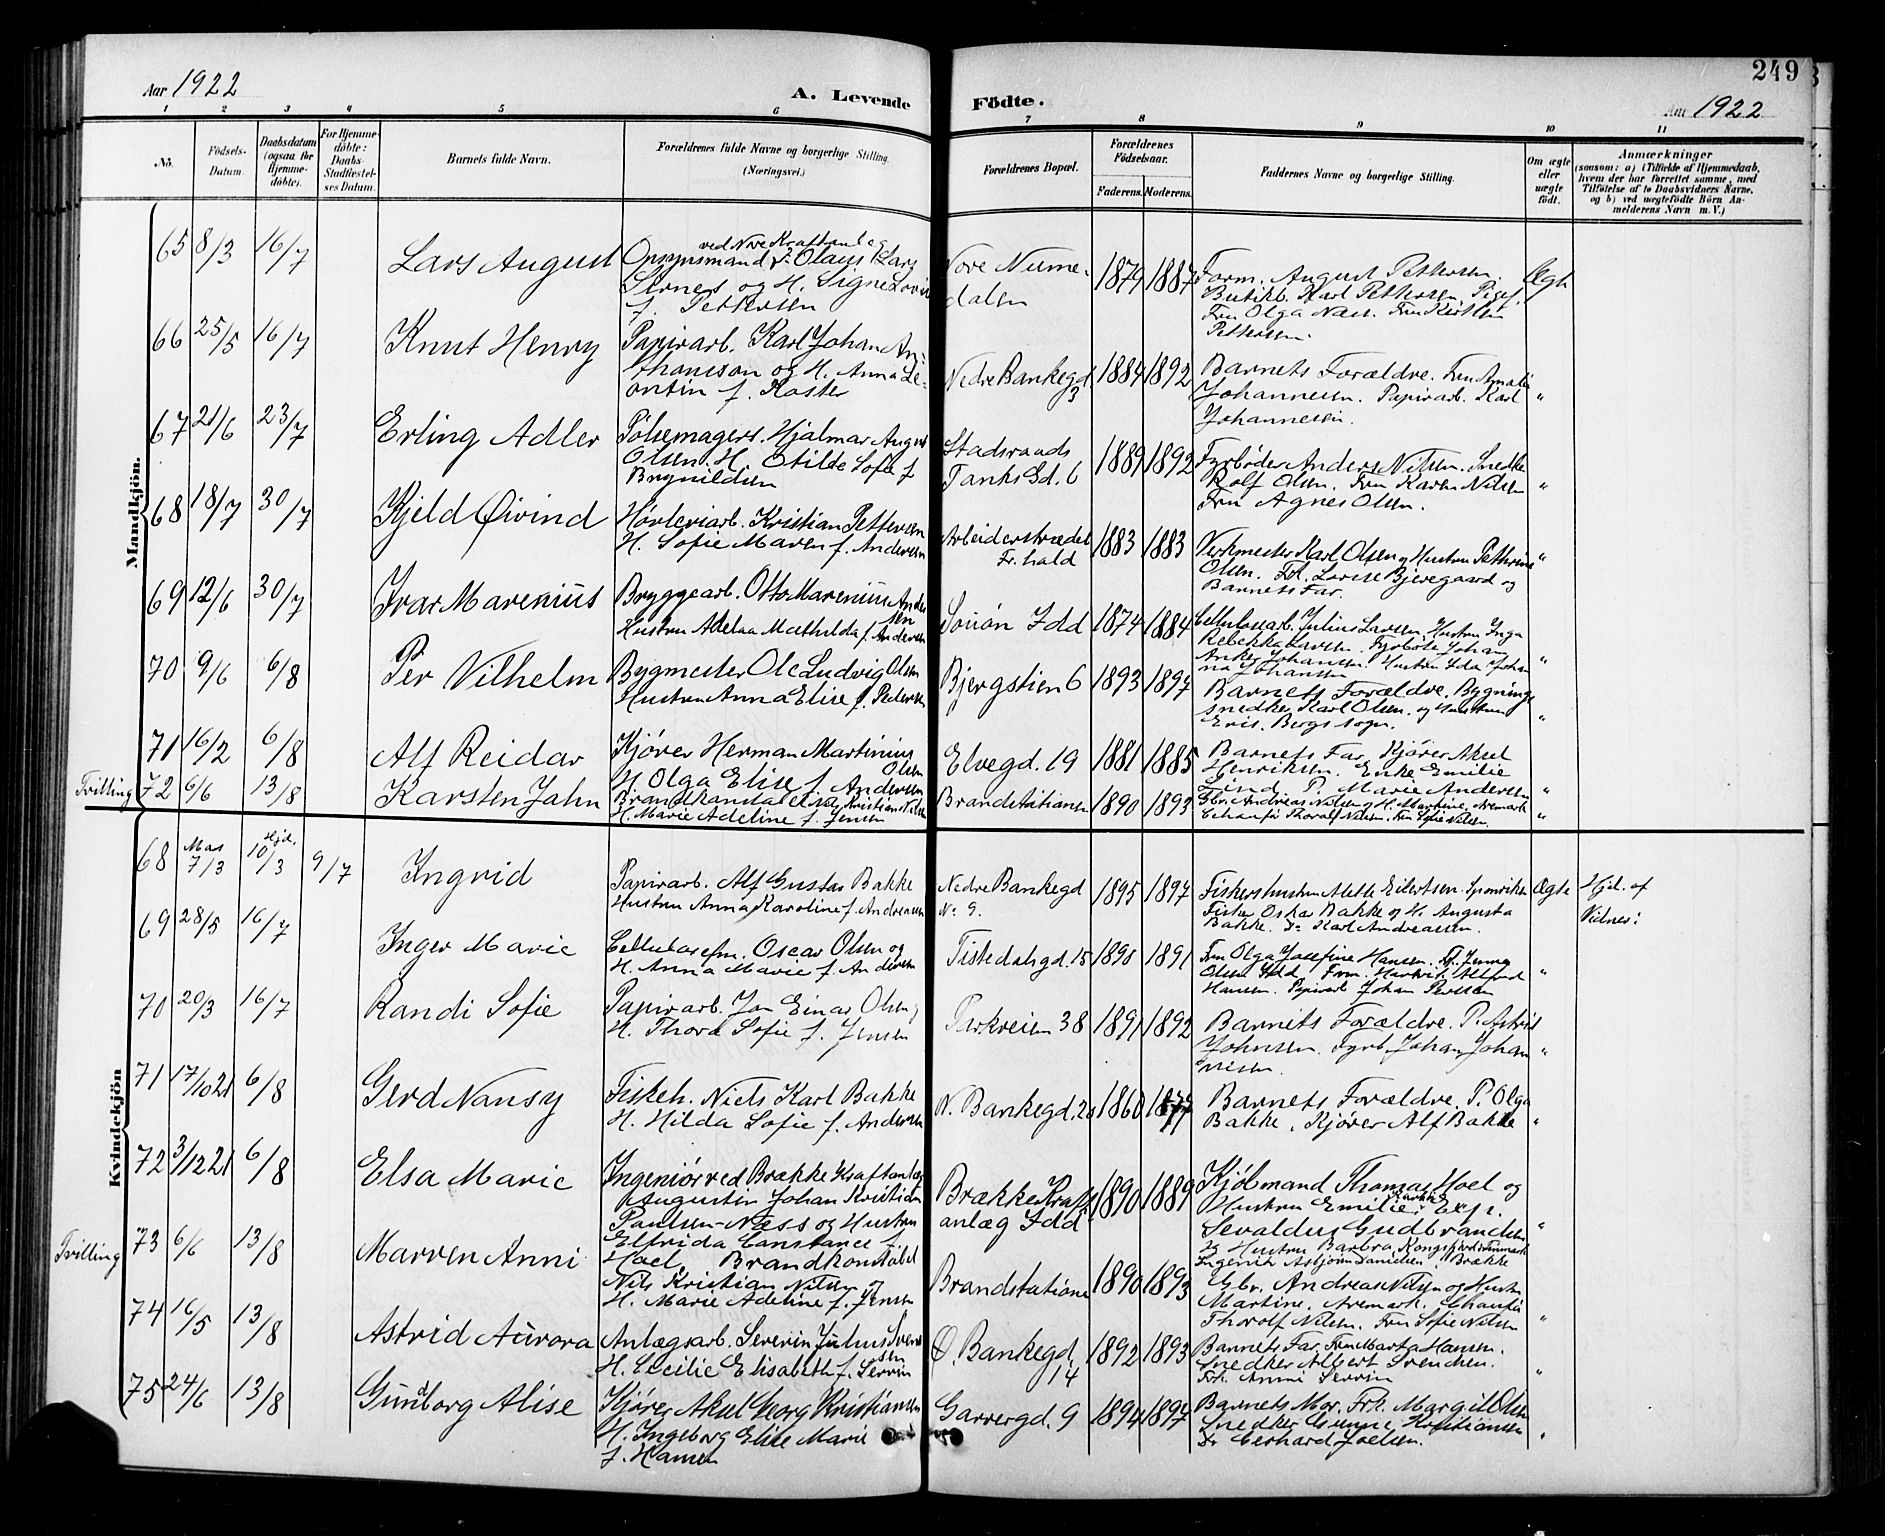 249
Aar 1922
A. Levende
Födte.
Aar 1922
1 2 3 4 5 6 7 8 9 10 11
No. Födsels-Datum. Daabsdatum (ogsaa for Hjemmedöbte). For Hjemmedöbte: Daabs-Stadfæstelses Datum. Barnets fulde Navn. Forældrenes fulde Navne og borgerlige Stilling. (Næringsvei.) Forældrenes Bopæl. Forældrenes Födselsaar. Faderens. Moderens. Faddernes Navne og borgerlige Stilling. Om ægte eller uægte födt. Anmærkninger
(saasom: a) i Tilfælde af Hjemmedaab,
hvem der har forrettet samme, med
Tilföielse af to Daabsvidners Navne,
og b) ved uægtefödte Börn An-
melderens Navn m. V.)
Mandkjön.
65 8/3 16/7 Lars August
ved Nore Kraftanlæg
Opsynsmand Olaus Lars
og H. Signe
f. Pettersen
Nore Nume-
dalen
1879 1887
Form. August Pettersen.
Butikb. Karl Pettersen. Pige
Fru Olga Næs. Fru
Pettersen.
Ægte
66 25/5 16/7 Knut Henry
Papirarb. Karl Johan An-
thonsson og H. Anna Le-
ontin f. Koster
Nedre Bankegd
3
1884 1892
Barnets Forældre. Fru Amalie
Johannesen. Papirarb. Karl
Johannesen.
"
67 21/6 23/7 Erling Adler
Pölsemagers. Hjalmar August
Olsen. H. Otilde Sofie f
Brynildsen
Stadsraads
Tanks Gd. 6
1889 1892
Fyrböder Anders Nilsen. Snedker
Rolf Olsen. Fru Karen Nilsen
Fru Agnes Olsen.
"
68 18/7 30/7 Kjeld Øivind
Høvleriarb. Kristian Pettersen
H. Sofie Maren f. Andersen
Arbeiderstrædet
Fr.hald
1883 1883
Verkmester Karl Olsen og Hustru Pethrine
Olsen. Frk. Lovise Bjeregaard og
Barnets Far.
"
69 12/6 30/7 Ivar Marenius
Bryggearb. Otto Marenius Ander
sen
Hustru Adelaa Mathilda f. Andersen
Idd
1874 1884
Cellulosearb. Julius Larsen. Hustru Inga
Rebekka Larsen. Johan
Anker Johansen. Hustru Ida Johan
na Johansen
"
70 9/6 6/8 Per Vilhelm
Bygmester Ole Ludvig Olsen
Hustru Anna Elise f. Pedersen
Bjergstien 6
1893 1897
Barnets Forældre. Bygnings
snedker Karl Olsen. og Hustru
Bergs sogn.
"
71 16/2 6/8 Alf Reidar
Kjører Herman Martinius
Olsen
H Olga Elise f. Andersen
Elvegd. 19
1881 1885
Barnets Far Kjører Aksel
Henriksen. Enke Emilie
Lind P. Marie Andersen
"
Tvilling
72 6/6 13/8 Karsten Jahn
Brandkonstabel Nils Kristian Nilsen
H. Marie Adeline f. Jensen
Brandstationen
1890 1893
Gbr. Andreas Nilsen og H. Martine. Aremark
Chauför Thorolf Nilsen. Fru Sofie Nilsen.
"
Kvindekjön
68 Mars 7/3 Hjd. 10/3 9/7 Ingrid
Papirarb. Alf Gustav Bakke
Hustru Anna Karoline f. Andreassen
Nedre Bankegd
No 9.
1895 1897
Fiskers hustru Alette Eilertsen. Sponviken
Fisker Oskar Bakke og H. Augusta
Bakke. Do Karl Andreassen.
Ægte
Hjd. af
Vidner:
69 28/5 16/7 Inger Marie
Cellulosefm. Oscar Olsen og
H. Anna Marie f. Andersen
Tistedalsgd. 15
1890 1891
Fru Olga Josefine Hansen. Fr. Jenny
Olsen Idd. Form. Hartvik Alfred
Hansen. Papirarb Johan
"
70 20/3 16/7 Randi Sofie
Papirarb. Jon Einar Olsen og
H. Thora Sofie f. Jensen
Parkveien 38
1891 1892
Barnets Forældre. P. Astrid
Johnsen. Fyrb Johan Johan
nesen.
"
71 17/10 21 6/8 Gerd Nansy
Fiskeh. Niels Karl Bakke
H. Hilda Sofie f. Andersen
N. Bankegd. 20
1860 1877
Barnets Forældre. P. Olga
Bakke, Kjører Alf Bakke
"
72 3/12 21 6/8 Elsa Marie
Ingeniør ved Brække Kraftanlæg
Augustin Johan Kristian
Paulsen-Næss og Hustru
Elfrida Constance f.
Hoel.
Brække Kraft-
anlæg Idd
1890 1889
Kjöbmand Thomas Hoel og
Hustru Emilie. Exp.
Sevaldus Gudbrandsen
og Hustru Barbra, Kongsfjord i Finmark
Ingeniör Asbjörn Danielsen. Brække
"
Tvilling
73 6/6 13/8 Marven Anni
Brandkonstabel
Nils Kristian Nilsen og
H. Marie Adeline f. Jensen
Brandstationen
1890 1893
Gbr. Andreas Nilsen og Hustru
Martine. Aremark. Chauför
Thorolf Nilsen. Fru Sofie Nilsen
"
74 16/5 13/8 Astrid Aurora
Anlægsarb. Severin Julius Svend
sen
H. Cecilie Elisabeth f. Servin
Ø. Bankegd.
14
1892 1893
Barnets Far. Fru Marta Hansen.
Snedker Albert Svendsen.
Frk. Anni Servin
"
75 24/6 13/8 Gundborg Alise
Kjører Aksel Georg Kristiansen
H. Ingeborg Elise Marie
f. Hansen
Garvergd. 9
1894 1897
Barnets Mor. Frk. Margit Olsen
Snedker Kristiansen
Do Gerhard Joelsen.
"